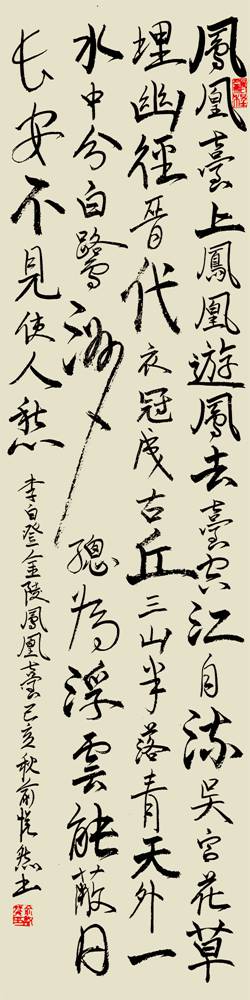 鳳凰臺上鳳凰遊鳳去臺空江自流吳宮花草
埋幽徑晉代衣冠成古丘三山半落青天外一
水中分白鷺洲總為浮雲能蔽日
長安不見使人愁
李白登金陵鳳凰臺己亥秋俞悅然書